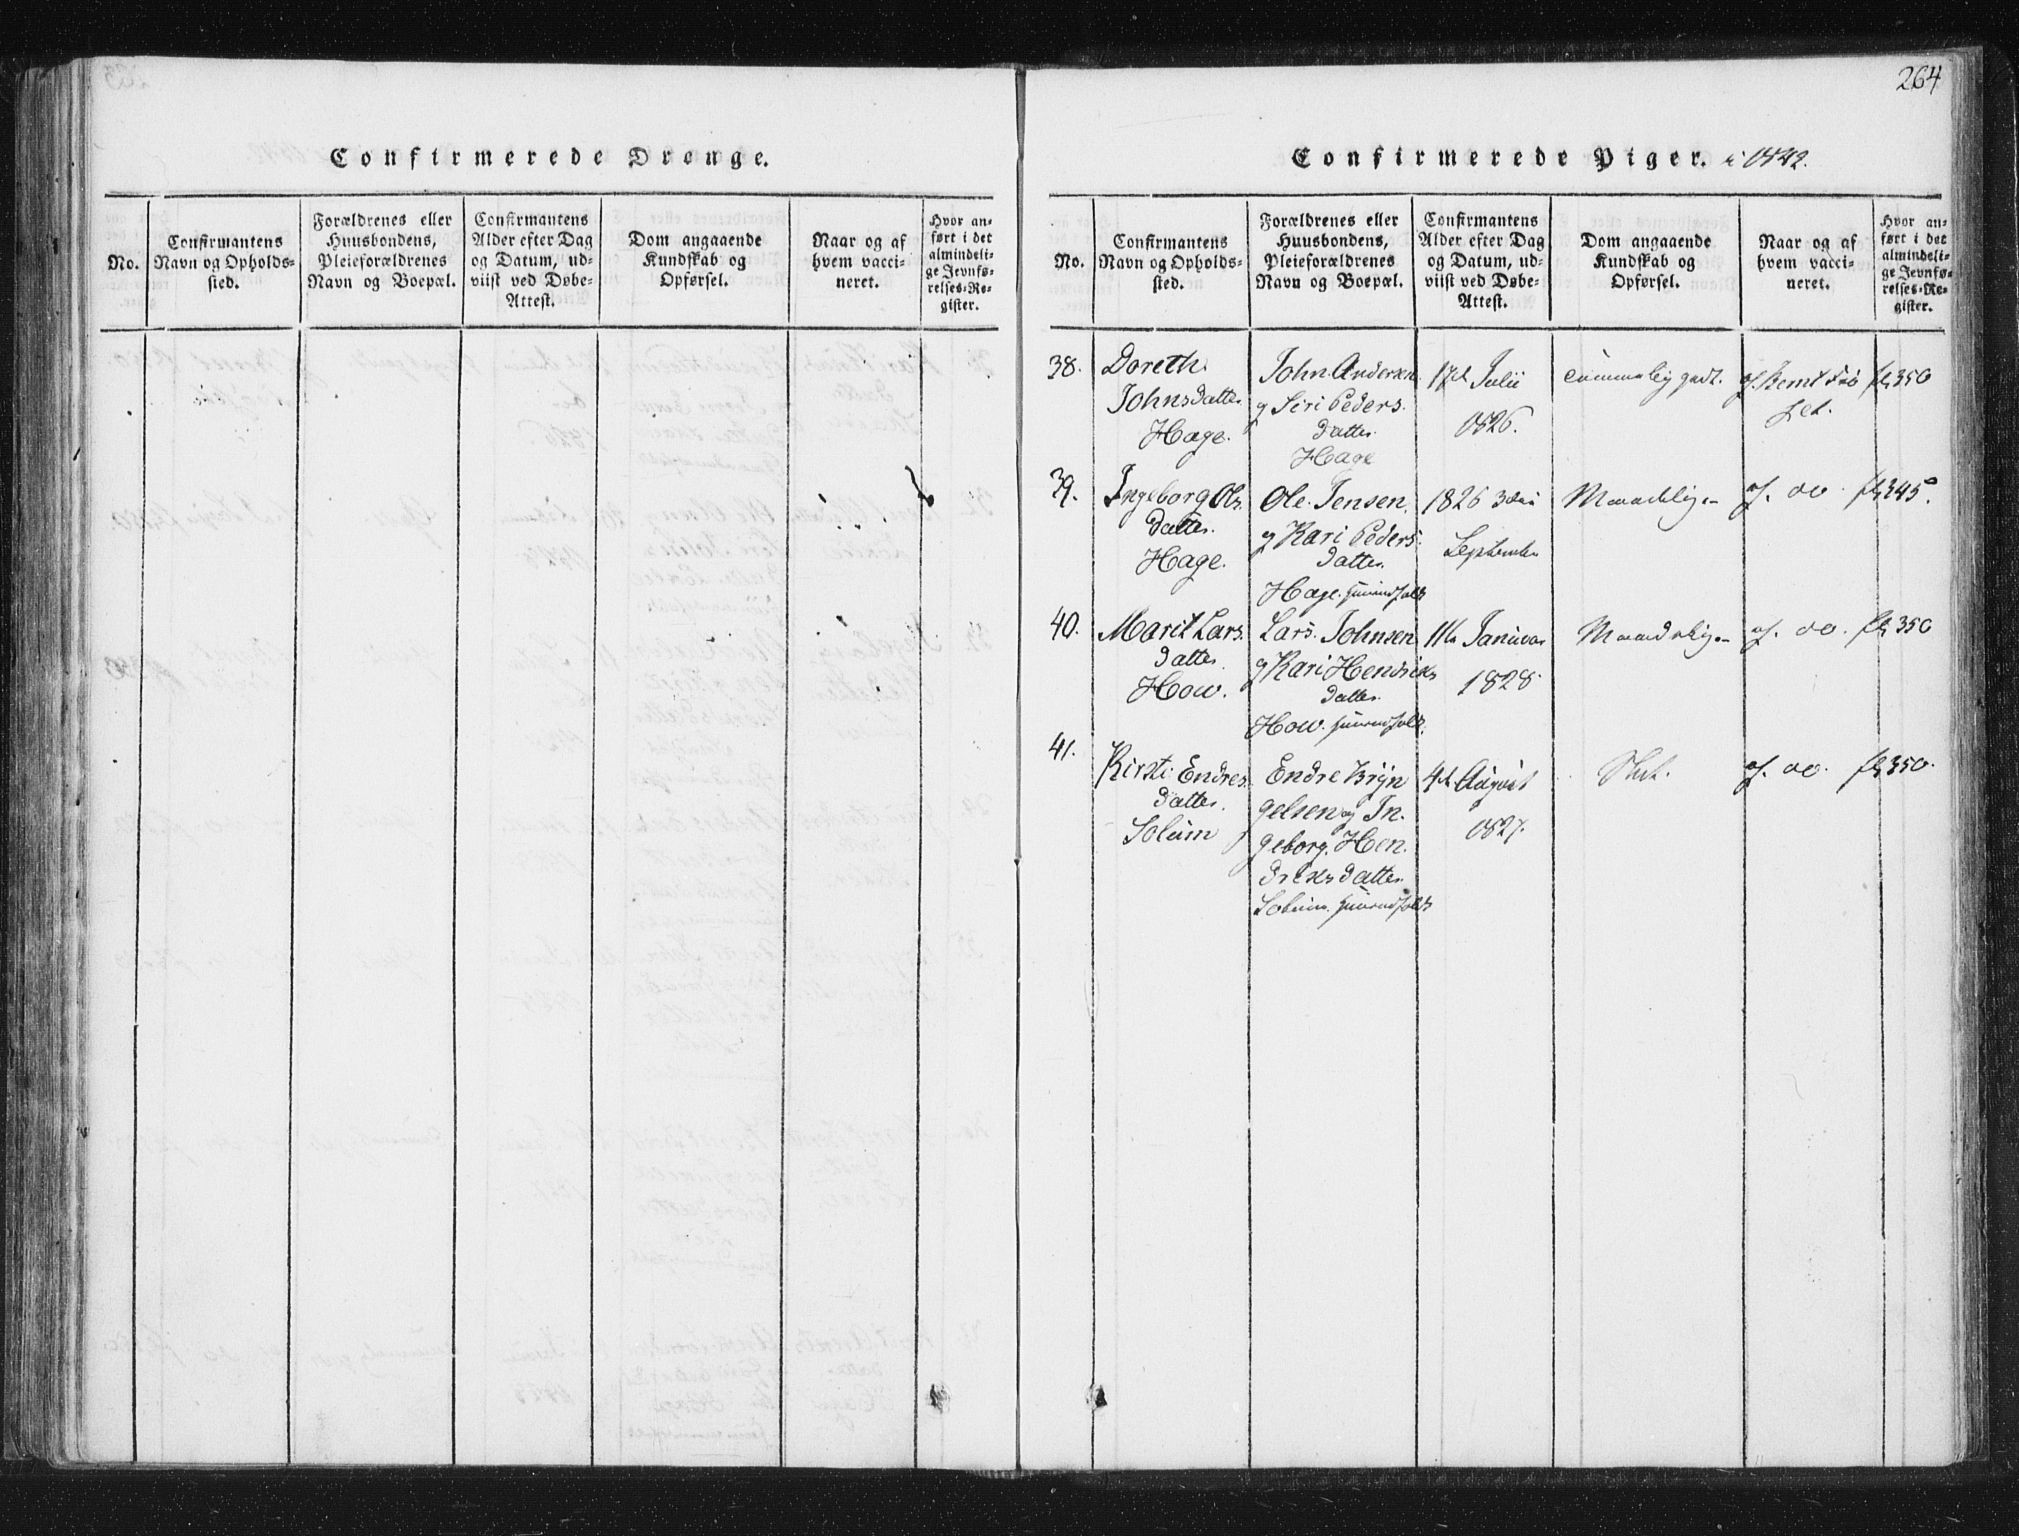 264
Confirmerede Drenge.
No.
Confirmantens
Navn og Opholds-
sted.
Forældrenes eller
Huusbondens,
Pleieforældrenes
Navn og Boepæl.
Confirmantens
Alder efter Dag
og Datum, ud-
viist ved Døbe-
Attest.
Dom angaaende
Kundskab og
Opførsel.
Naar og af
hvem vacci-
neret.
Hvor an-
ført i det
almindeli-
ge Jevnfø-
relses-Re-
gister.
Confirmerede Piger. i 1842.
No.
Confirmantens
Navn og Opholds-
sted.
Forældrenes eller
Huusbondens,
Pleieforældrenes
Navn og Boepæl.
Confirmantens
Alder efter Dag
og Datum, ud-
viist ved Døbe-
Attest.
Dom angaaende
Kundskab og
Opførsel.
Naar og af
hvem vacci-
neret.
Hvor an-
ført i det
almindeli-
ge Jevnfø-
relses-Re-
gister.
38.
Doreth
Johnsdatter
Hage.
John Andersen
og Siri Peders.
datter
Hage
17d Julii
1826.
Temmelig godt.
af Bernt
350
39.
Ingeborg Ols.
datter.
Hage.
Ole Jensen
og Kari Peders
datter.
Hage.
1826 3die
September
Maadelig
af. do.
345.
40.
Marit Lars.
datter.
How.
Lars. Johnsen
og Kari Hendriks
datter.
How.
11te Januar
1828
Maadelig
af. do.
350
41.
Kirsti Endres.
datter.
Solum
Endre Bryn
gelsen og In.
geborg. Hen.
driksdatter
Solum.
4d August
1827.
Slet.
af. do.
350.